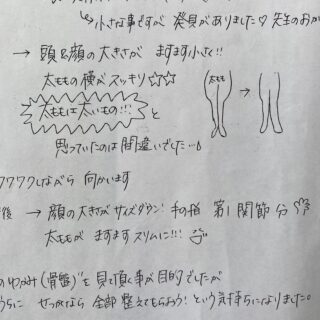 小さな事ですが 発見がありました♡ 先生のおか
→ 頭&顔の大きさが ますます小さく!!
太ももの横がスッキリ☆☆
太ももは太いもの!!! と
太もも
→
思っていたのは間違いでした…♪
ワクワクしながら 向かいます
後 → 顔の大きさがサイズダウン! 私の指 第1関節分
太ももが ますますスリムに!!!
のゆがみ(骨盤)を見て頂く事が目的でしたが
うちに せっかくなら 全部整えてもらおう! という気持ちになりました。